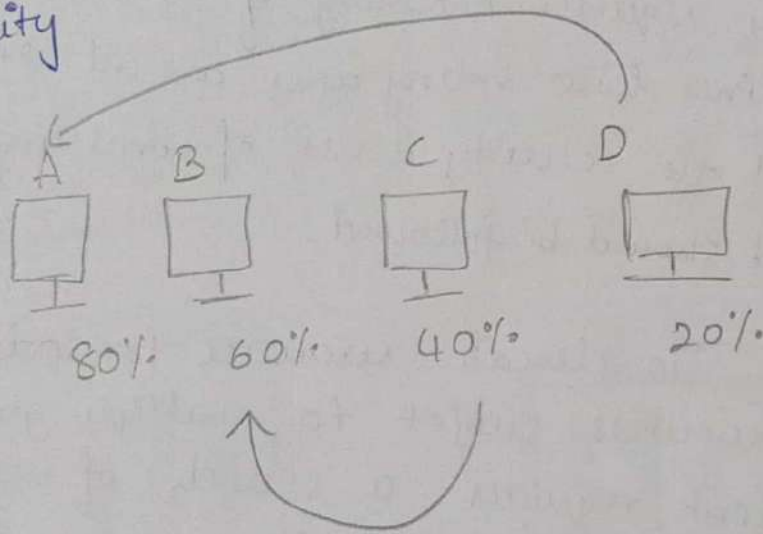 ity
A B C D
80%. 60%. 40%. 20%.